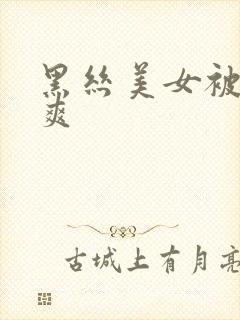 黑丝美女被
爽
古城上有月亮